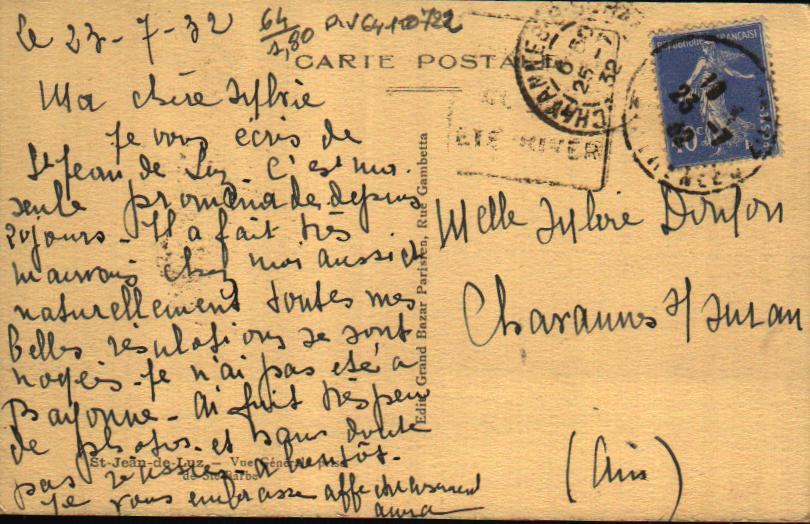 le 23-7-32
64
1,80
CARTE POSTALE
Ma chère Sylvie
Je vous écris de
St Jean de Luz. C'est ma
seule promenade depuis
20 jours - Il a fait très
mauvais chez moi aussi et
naturellement toutes mes
belles résolutions se sont
noyées. Je n'ai pas été à
Bayonne - Ai fait très peu
de photos et sans doute
pas réussies - A bientôt.
Je vous embrasse affectueusement
St-Jean-de-Luz. - Vue Générale prise
de Ste-Barbe
Edit. Grand Bazar Parisien, Rue Gambetta
CHAVANNES
25 -7
32
ÉTÉ HIVER
République Française
23 -7
Melle Sylvie
Chavannes s/ Suran
(Ain)